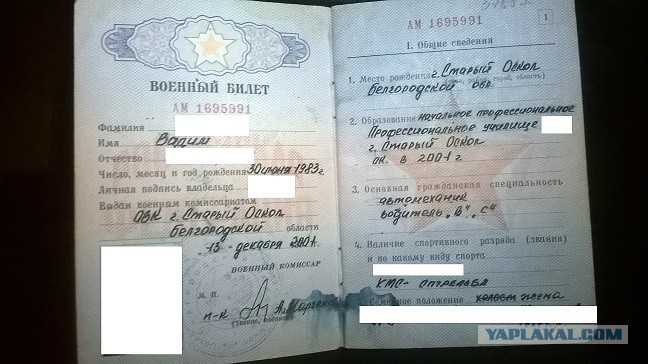 ВОЕННЫЙ БИЛЕТ
АМ 1695991
Фамилия
Имя Вадим
Отчество
Число, месяц и год рождения 30 июня 1983 г
Личная подпись владельца
Выдан военным комиссариатом
ОВК г. Старый Оскол
Белгородской области
15 декабря 2001.
ВОЕННЫЙ КОМИССАР
М. П.
п-к
(звание, подпись)
АМ 1695991
1
I. Общие сведения
1. Место рождения г. Старый Оскол
Белгородской обл.
2. Образование начальное профессиональное
Профессиональное училище
г. Старый Оскол
ок. в 2001 г.
3. Основная гражданская специальность
автомеханик
водитель „В“, „С“
4. Наличие спортивного разряда (звания)
и по какому виду спорта
КМС -
5. Семейное положение холост жена
YAPLAKAL.COM